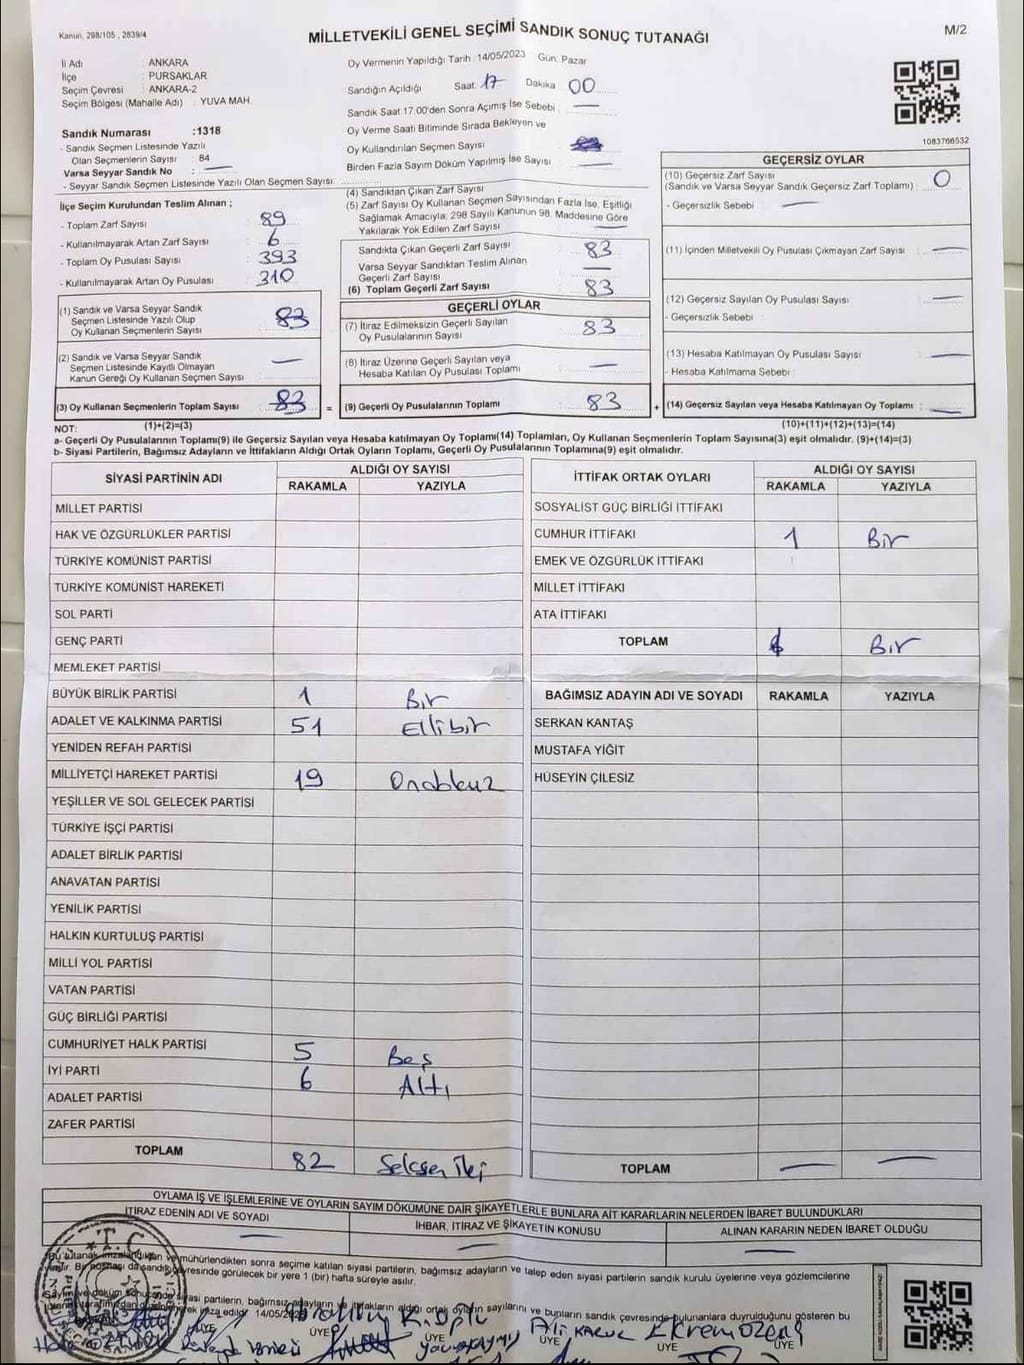 Kanun, 298/105 , 2839/4
MİLLETVEKİLİ GENEL SEÇİMİ SANDIK SONUÇ TUTANAĞI
M/2
İl Adı : ANKARA
İlçe : PURSAKLAR
Seçim Çevresi : ANKARA-2
Seçim Bölgesi (Mahalle Adı) : YUVA MAH.
Sandık Numarası :1318
- Sandık Seçmen Listesinde Yazılı
Olan Seçmenlerin Sayısı : 84
Varsa Seyyar Sandık No : —
- Seyyar Sandık Seçmen Listesinde Yazılı Olan Seçmen Sayısı:
Oy Vermenin Yapıldığı Tarih :14/05/2023 Gün: Pazar
Sandığın Açıldığı Saat: 17 Dakika 00
Sandık Saat 17.00'den Sonra Açımış İse Sebebi : —
Oy Verme Saati Bitiminde Sırada Bekleyen ve
Oy Kullandırılan Seçmen Sayısı :
Birden Fazla Sayım Döküm Yapılmış İse Sayısı : —
1083766532
İlçe Seçim Kurulundan Teslim Alınan ;
- Toplam Zarf Sayısı : 89
- Kullanılmayarak Artan Zarf Sayısı : 6
- Toplam Oy Pusulası Sayısı : 393
- Kullanılmayarak Artan Oy Pusulası : 310
(1) Sandık ve Varsa Seyyar Sandık
Seçmen Listesinde Yazılı Olup
Oy Kullanan Seçmenlerin Sayısı : 83
(2) Sandık ve Varsa Seyyar Sandık
Seçmen Listesinde Kayıtlı Olmayan
Kanun Gereği Oy Kullanan Seçmen Sayısı : —
(3) Oy Kullanan Seçmenlerin Toplam Sayısı : 83 =
(1)+(2)=(3)
(4) Sandıktan Çıkan Zarf Sayısı
(5) Zarf Sayısı Oy Kullanan Seçmen Sayısından Fazla İse, Eşitliği
Sağlamak Amacıyla, 298 Sayılı Kanunun 98. Maddesine Göre
Yakılarak Yok Edilen Zarf Sayısı : —
Sandıkta Çıkan Geçerli Zarf Sayısı : 83
Varsa Seyyar Sandıktan Teslim Alınan
Geçerli Zarf Sayısı : —
(6) Toplam Geçerli Zarf Sayısı : 83
GEÇERLİ OYLAR
(7) İtiraz Edilmeksizin Geçerli Sayılan
Oy Pusulalarının Sayısı : 83
(8) İtiraz Üzerine Geçerli Sayılan veya
Hesaba Katılan Oy Pusulası Toplamı : —
(9) Geçerli Oy Pusulalarının Toplamı : 83 +
GEÇERSİZ OYLAR
(10) Geçersiz Zarf Sayısı
(Sandık ve Varsa Seyyar Sandık Geçersiz Zarf Toplamı) : 0
- Geçersizlik Sebebi : —
(11) İçinden Milletvekili Oy Pusulası Çıkmayan Zarf Sayısı : —
(12) Geçersiz Sayılan Oy Pusulası Sayısı : —
- Geçersizlik Sebebi :
(13) Hesaba Katılmayan Oy Pusulası Sayısı : —
- Hesaba Katılmama Sebebi :
(14) Geçersiz Sayılan veya Hesaba Katılmayan Oy Toplamı : —
(10)+(11)+(12)+(13)=(14)
NOT:
a- Geçerli Oy Pusulalarının Toplamı(9) ile Geçersiz Sayılan veya Hesaba katılmayan Oy Toplamı(14) Toplamları, Oy Kullanan Seçmenlerin Toplam Sayısına(3) eşit olmalıdır. (9)+(14)=(3)
b- Siyasi Partilerin, Bağımsız Adayların ve İttifakların Aldığı Ortak Oyların Toplamı, Geçerli Oy Pusulalarının Toplamına(9) eşit olmalıdır.
SİYASİ PARTİNİN ADI ALDIĞI OY SAYISI
RAKAMLA YAZIYLA
MİLLET PARTİSİ
HAK VE ÖZGÜRLÜKLER PARTİSİ
TÜRKİYE KOMÜNİST PARTİSİ
TÜRKİYE KOMÜNİST HAREKETİ
SOL PARTİ
GENÇ PARTİ
MEMLEKET PARTİSİ
BÜYÜK BİRLİK PARTİSİ 1 Bir
ADALET VE KALKINMA PARTİSİ 51 Ellibir
YENİDEN REFAH PARTİSİ
MİLLİYETÇİ HAREKET PARTİSİ 19 Ondokuz
YEŞİLLER VE SOL GELECEK PARTİSİ
TÜRKİYE İŞÇİ PARTİSİ
ADALET BİRLİK PARTİSİ
ANAVATAN PARTİSİ
YENİLİK PARTİSİ
HALKIN KURTULUŞ PARTİSİ
MİLLİ YOL PARTİSİ
VATAN PARTİSİ
GÜÇ BİRLİĞİ PARTİSİ
CUMHURİYET HALK PARTİSİ 5 Beş
İYİ PARTİ 6 Altı
ADALET PARTİSİ
ZAFER PARTİSİ
TOPLAM 82 Seksen İki
İTTİFAK ORTAK OYLARI ALDIĞI OY SAYISI
RAKAMLA YAZIYLA
SOSYALİST GÜÇ BİRLİĞİ İTTİFAKI
CUMHUR İTTİFAKI 1 Bir
EMEK VE ÖZGÜRLÜK İTTİFAKI
MİLLET İTTİFAKI
ATA İTTİFAKI
TOPLAM 1 Bir
BAĞIMSIZ ADAYIN ADI VE SOYADI RAKAMLA YAZIYLA
SERKAN KANTAŞ
MUSTAFA YİĞİT
HÜSEYİN ÇİLESİZ
TOPLAM — —
OYLAMA İŞ VE İŞLEMLERİNE VE OYLARIN SAYIM DÖKÜMÜNE DAİR ŞİKAYETLERLE BUNLARA AİT KARARLARIN NELERDEN İBARET BULUNDUKLARI
İTİRAZ EDENİN ADI VE SOYADI İHBAR, İTİRAZ VE ŞİKAYETİN KONUSU ALINAN KARARIN NEDEN İBARET OLDUĞU
— — —
Bu tutanak imzalandıktan ve mühürlendikten sonra seçime katılan siyasi partilerin, bağımsız adayların ve talep eden siyasi partilerin sandık kurulu üyelerine veya gözlemcilerine
verilir. Bir nüshası da sandık çevresinde görülecek bir yere 1 (bir) hafta süreyle asılır.
siyasi partilerin, bağımsız adayların ve ittifakların aldığı ortak oyların sayılarını ve bunların sandık çevresinde bulunanlara duyurulduğunu gösteren bu
T.C.
ÜYE ÜYE ÜYE ÜYE ÜYE ÜYE
Ekrem Özen